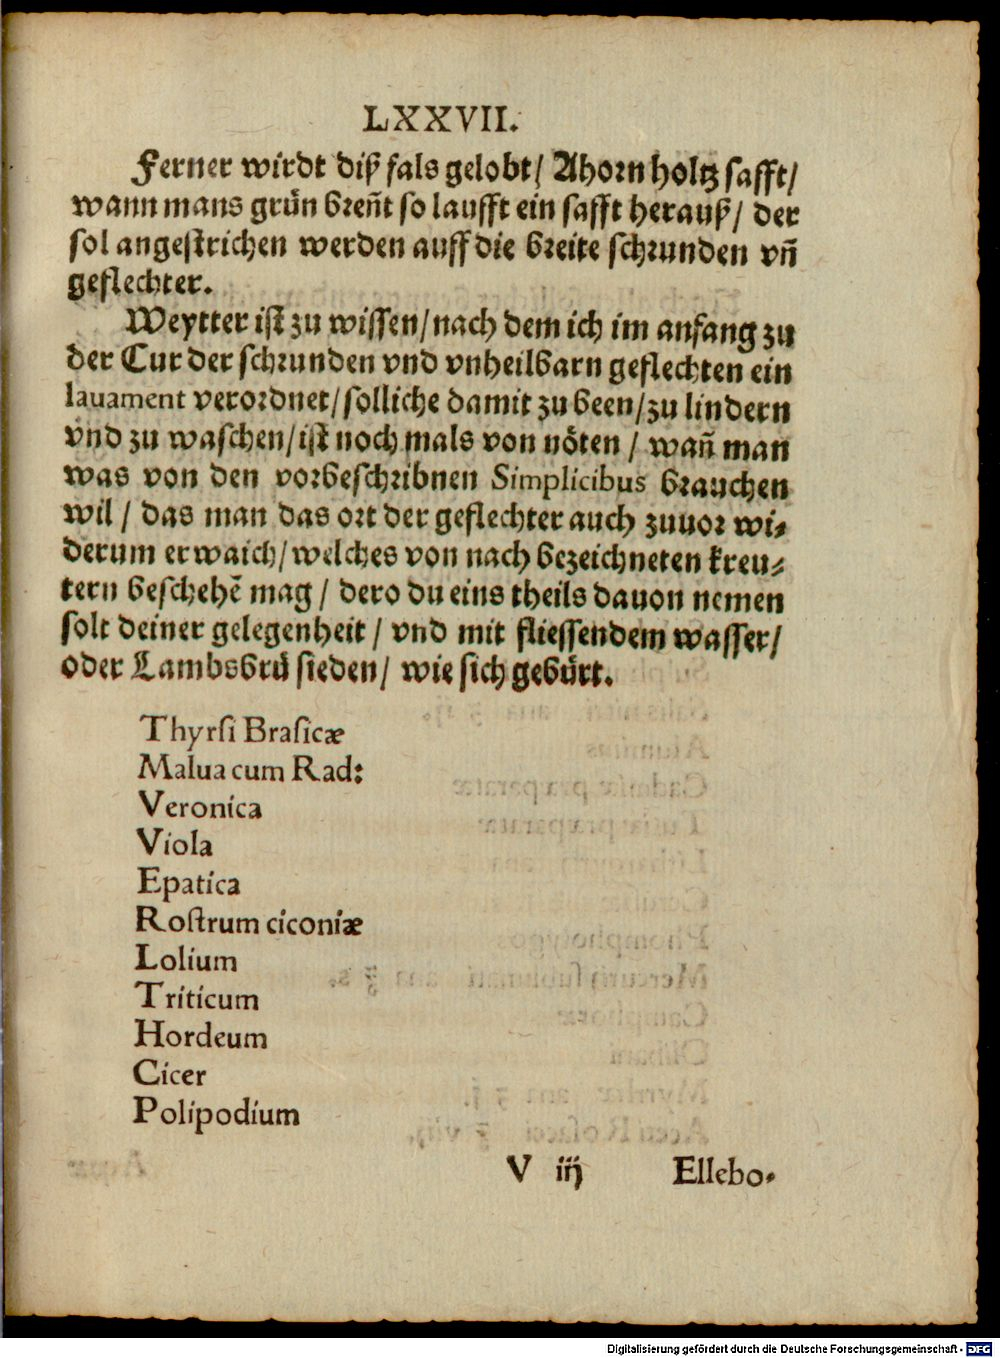 LXXVII.
Ferner wirdt diß fals gelobt/ Ahorn holtz safft/
wann mans grün breñt so laufft ein safft herauß/ der
sol angestrichen werden auff die breite schrunden vñ
geflechter.
Weytter ist zu wissen/ nach dem ich im anfang zu
der Cur der schrunden vnd vnheilbarn geflechten ein
lauament verordnet/ solliche damit zu been/ zu lindern
vnd zu waschen/ ist noch mals von nöten/ wañ man
was von den vorbeschribnen Simplicibus brauchen
wil/ das man das ort der geflechter auch zuuor wi⸗
derum erwaich/ welches von nach bezeichneten kreu⸗
tern beschehẽ mag/ dero du eins theils dauon nemen
solt deiner gelegenheit/ vnd mit fliessendem wasser/
oder Lambsbrü sieden/ wie sich gebürt.
Thyrsi Brasicæ
Malua cum Rad:
Veronica
Viola
Epatica
Rostrum ciconiæ
Lolium
Triticum
Hordeum
Cicer
Polipodium
V iij Ellebo⸗
Digitalisierung gefördert durch die Deutsche Forschungsgemeinschaft - DFG